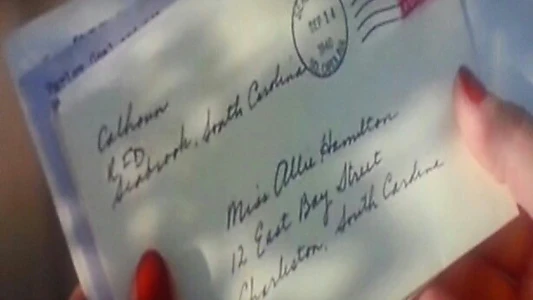 Calhoun
RFD
Seabrook, South Carolina
SEP 14
1940
Miss Allie Hamilton
12 East Bay Street
Charleston, South Carolina